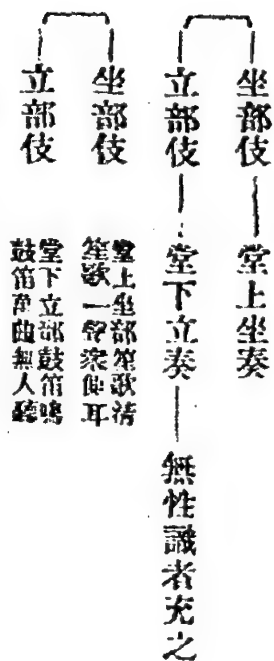 坐部伎——堂上坐奏
立部伎——堂下立奏——無性識者充之
坐部伎
堂上坐部笙歌清
笙歌一聲衆側耳
立部伎
堂下立部鼓笛鳴
鼓笛萬曲無人聽